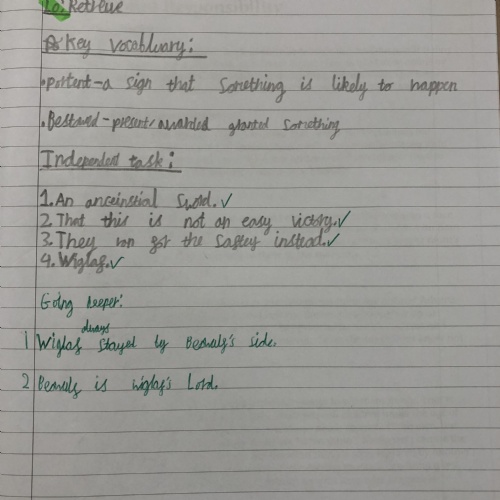 Lo: Retrieve
Key vocabluary:
•portent - a sign that something is likely to happen
•Bestowed - present/awarded granted something
Independent task:
1. An anceinstial sword. ✓
2. That this is not an easy victory. ✓
3. They ran for the safley instead. ✓
4. Wiglaf. ✓
Going deeper:
always
1 Wiglaf stayed by Beowulf's side.
2 Beowulf is wiglaf's Lord.